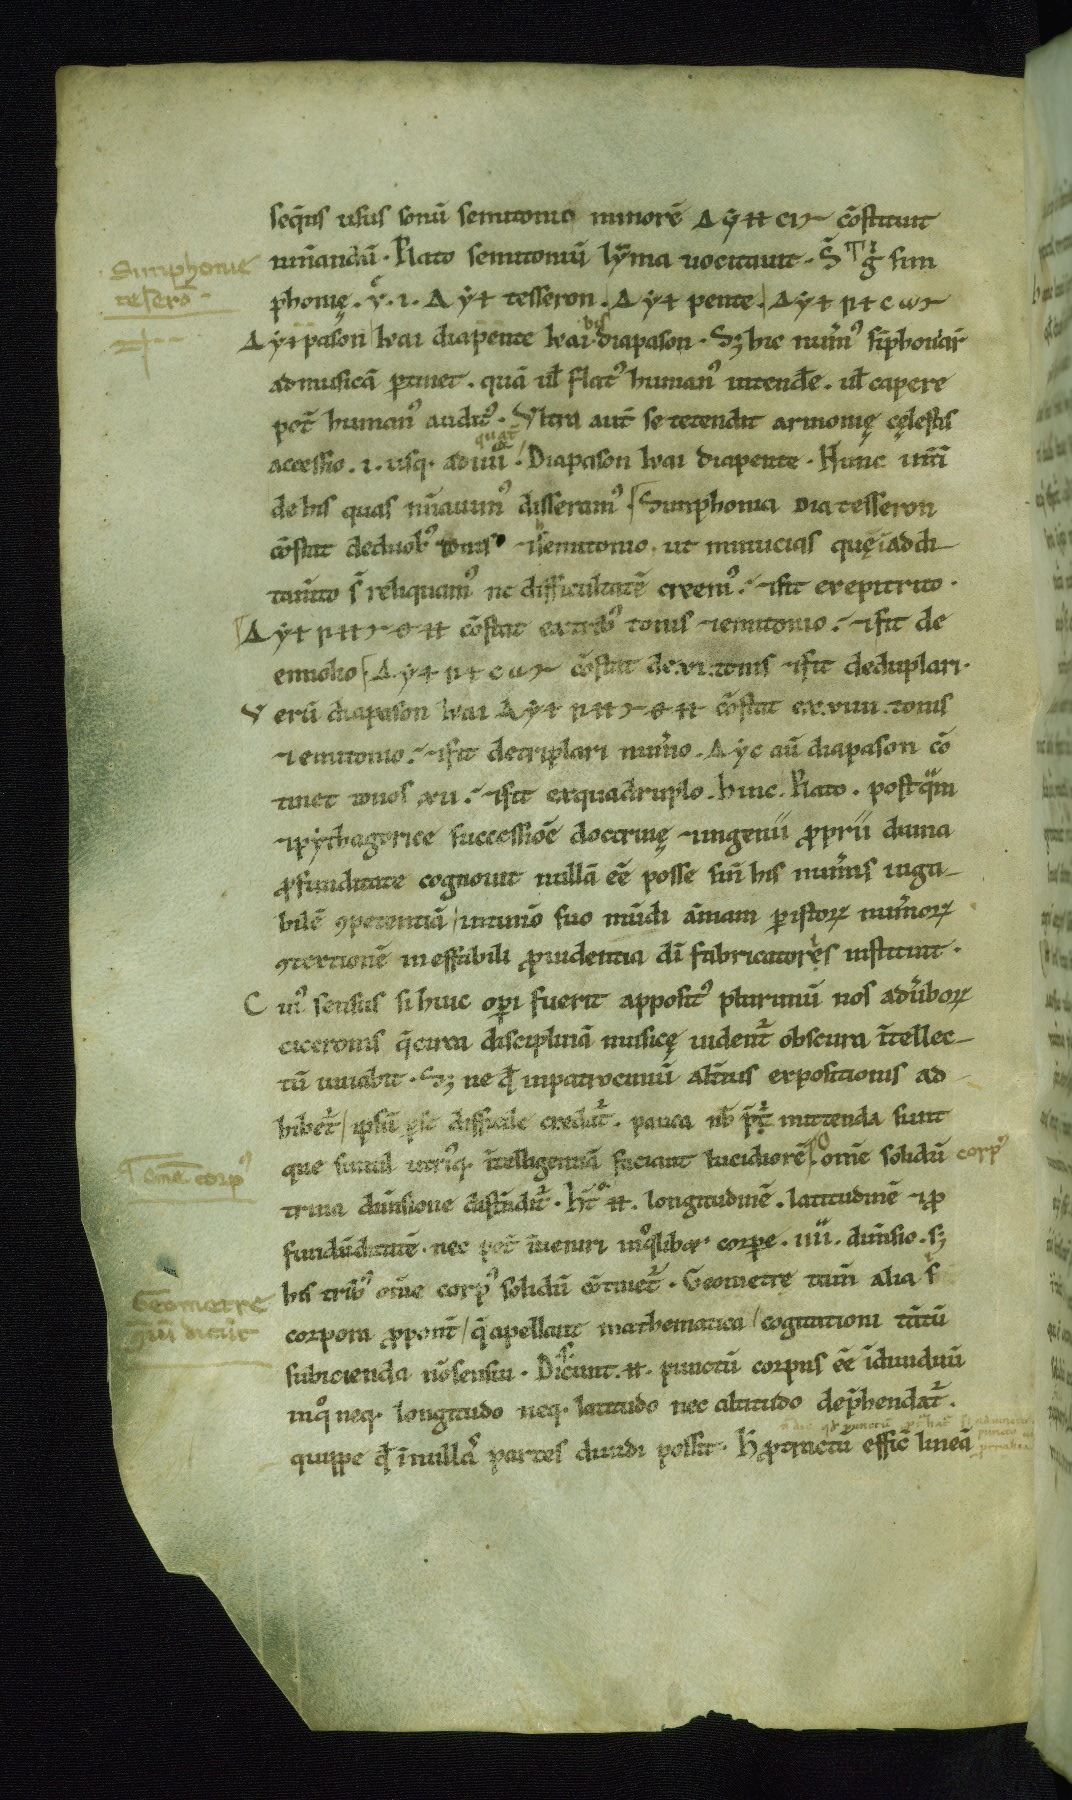 seq̄ns usus sonū semitonio minorē Δyⲡⲥⲓⲛ c̄ostituit
nn̄andū · Plato semitoniū lȳma uocitauit · S̄ ġ sim
phonię . v̊ . ı . Δy+ tesseron . Δy+ pente . Δy+ p+cωn
Δy+pason kai diapente kai bis diapason · Sꝫ hic num̄ꝰ sīphoniaꝝ
ad musicā ꝑtinet . quā ul̄ flatꝰ humanꝰ intend̄e . ul̄ capere
pot̄ humanꝰ auditꝰ · Vltra aut̄ se tetendit armonię cęlestis
accessio . ı . usq · ad iiii · Diapason kai diapente · Nunc int̄i
de his quas nn̄auimꝰ disseramꝰ · Simphonia Dia tesseron
c̄ostat de duobꝰ tonis ⁊ hemitonio . ut minucias quę iaddi-
tam̄to s̄ reliquamꝰ ne difficultatē creemꝰ : ⁊ fit ex epitrito ·
Δy+ c̄ostat ex tribꝰ tonis ⁊ emitonio : ⁊ fit de
emiolio · Δy+ p+cωn c̄ostat de . vi . tonis ⁊ fit de duplari ·
Verū diapason kai Δy+ c̄ostat ex . viiii . tonis
⁊ emitonio : ⁊ fit de triplari num̄o . Δyc aū diapason cō
tinet tonos xii : ⁊ fit ex quadruplo . hinc . Plato . postq̄m
⁊ pythagorice successiōe doctrinę ⁊ ingenii ꝓprii diuina
ꝓfunditate cognouit nullā ēe posse sin̄ his num̄is iuga-
bilē ꝯpetentiā / in timō suo mūdi āmam ꝑ istoꝝ num̄oꝝ
ꝯtextionē ineffabili ꝓuidentia dī fabricatoris instituit ·
Cuiꝰ sensus si huic oꝑi fuerit appositꝰ plurimū nos ad ūboꝝ
ciceronis q̄ circa disciplinā musicę uident̄ obscura ītellec-
tū iuuabit · Sꝫ ne qd̄ in patrocuniū alt̄ius expositionis ad
hibet̄ / ipsū ꝑ se difficile credit̄ . pauca nb̄ p̄ mittenda sunt
que simul utriꝰq · ītelligentiā faciant lucidiorē / ōme solidū corpꝰ
trina dim̄sione distēdit̄ · longitudinē . latitudinē ⁊ ꝓ
funditatē . nec pot̄ īueniri in q̊libꝫ corpe . iiii . dim̄sio . sꝫ
his tribꝰ ōme corpꝰ solidū cōtinet̄ · Geometrę tam̄ alia s
corpora ꝓponūt / q̄ apellant mathematica / cogitationi tātū
subicienda nō sensui · Dicunt . punctū corpus ēe īdiuiduū
in q̊ neq · longitudo neq · latitudo nec altitudo dep̄hendat̄ .
quippe qd̄ ī nullas partes diuidi possit · H̄ ꝓtractū effic̄ lineā
Simphonie
teserō
Ome corpꝰ
Geometre